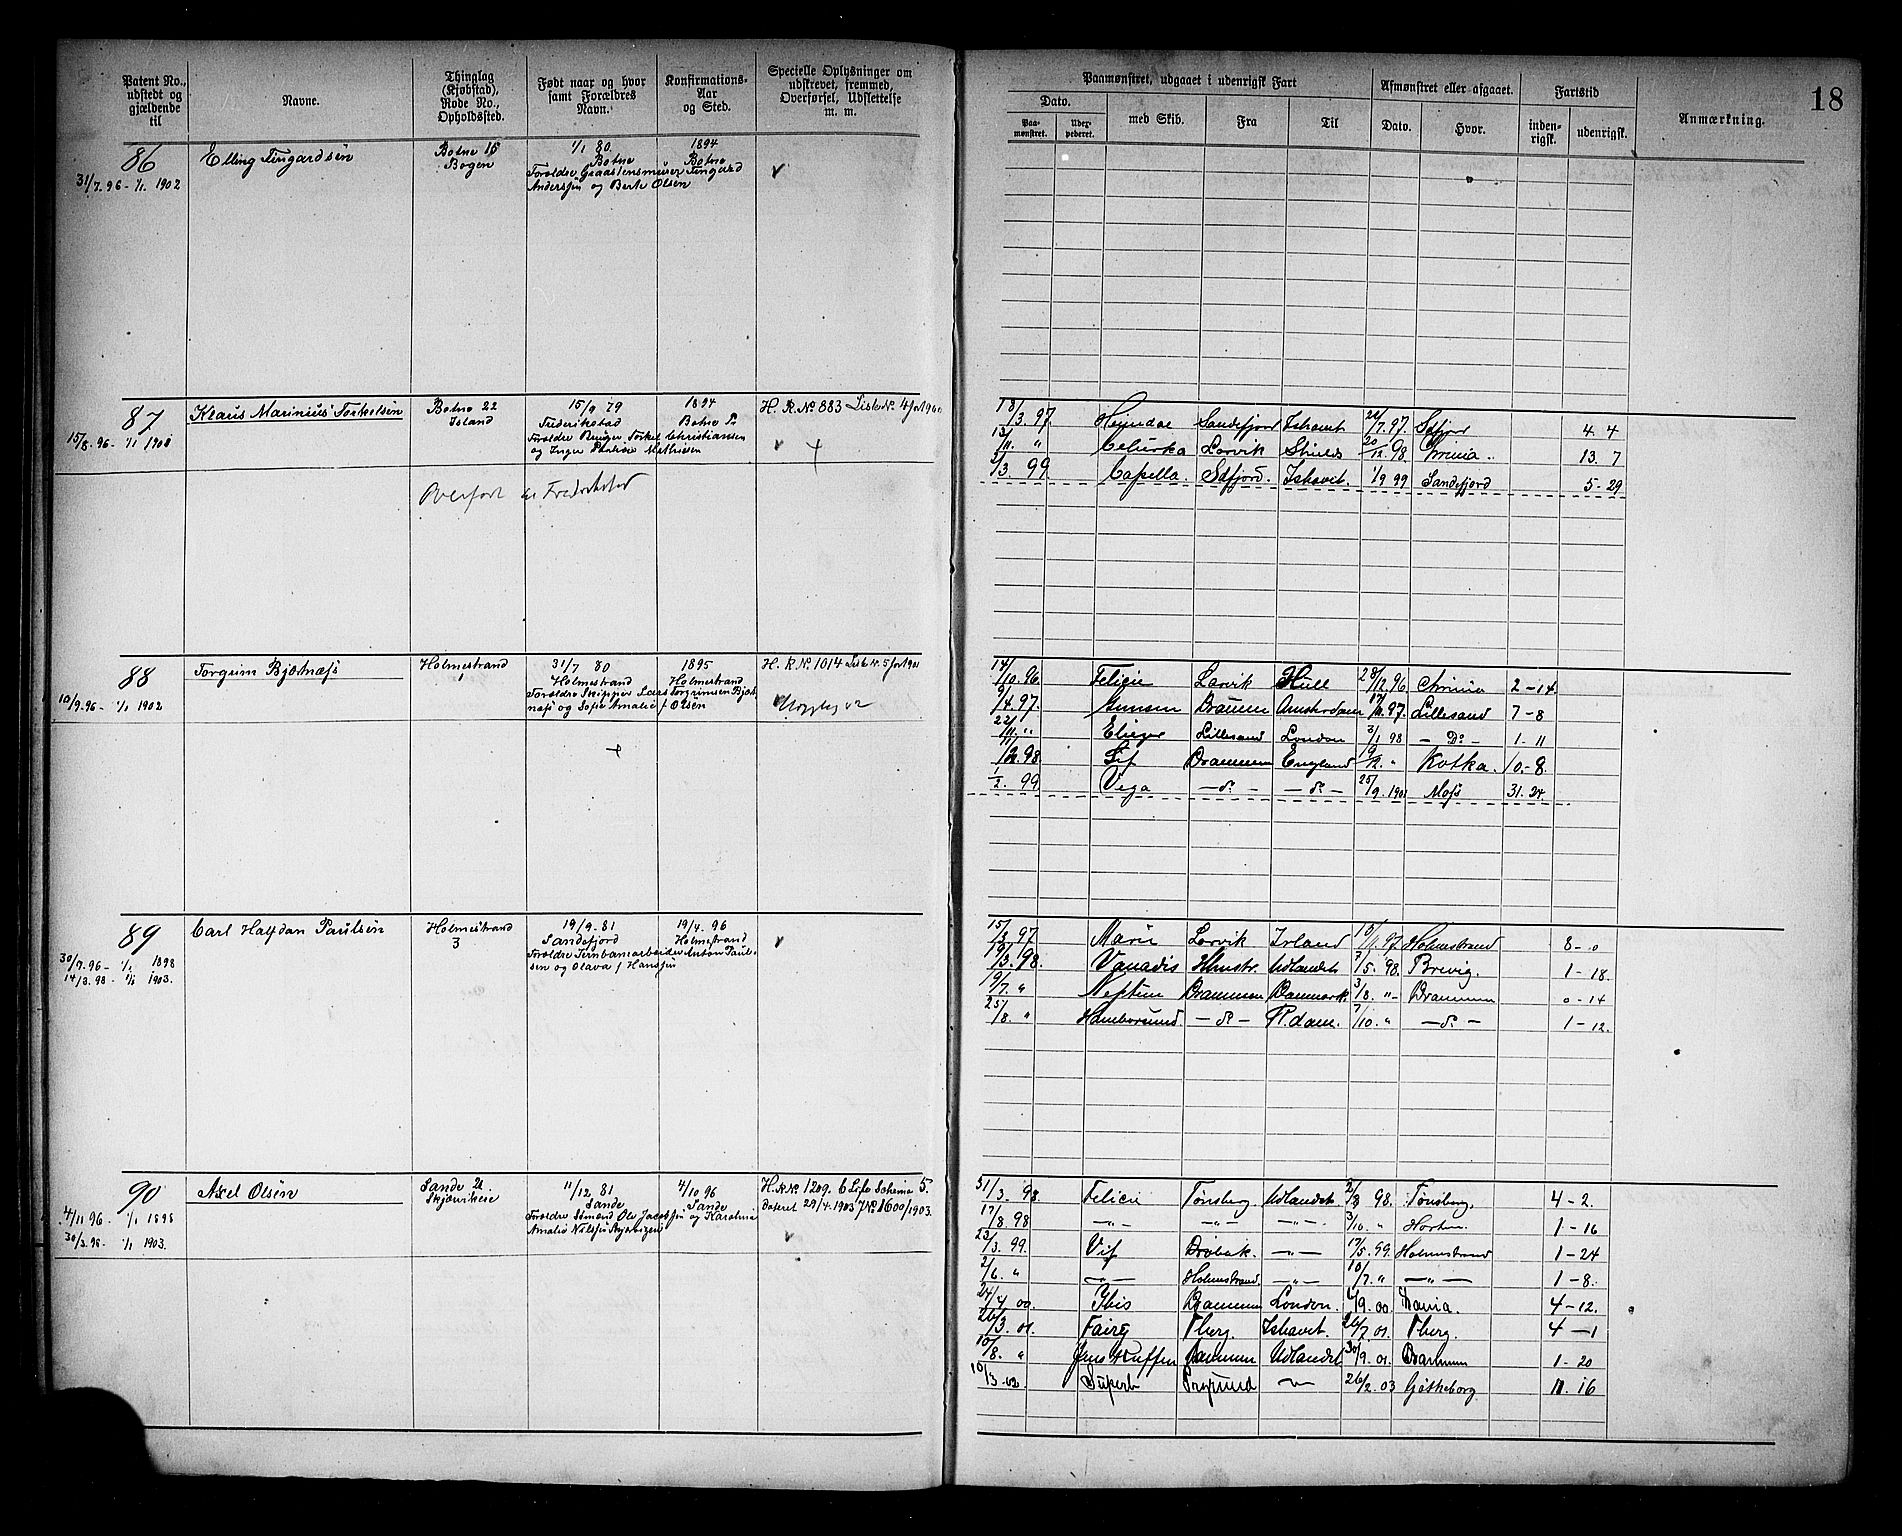 18
Patent No., udstedt og gjældende til
Navne.
Thinglag (Kjøbstad), Rode No., Opholdssted.
Født naar og hvor samt Forældres Navn.
Konfirmations-Aar og Sted.
Specielle Oplysninger om udskrevet, fremmed, Overførsel, Udslettelse m. m.
Paamønstret, udgaaet i udenrigsk Fart
Dato.
Paa-mønstret.
med Skib.
Fra
Til
Afmønstret eller afgaaet.
Dato.
Hvor.
Fartstid
inden-rigsk.
udenrigsk.
Anmærkning.
86 Elling Tingardsen Botne 15 1/1 80. 1894
31/7 96 - 1/1 1902 Bogen Botne Botne
Forældre Graastensmurer Tingard
Anderssøn og Berte Olsen
87 Klaus Marinius Torkelsen Botne 22 15/9 79 1894 H. R. No 883
15/8 96 - 1/1 1901 Island Frederikstad Botne
Inger Mathisen
Overført til Fredrikstad
18/3 97. Sandefjord Ishavet 7.97. Sdfjord 4. 4
Larvik Shields 20/12 98 13. 7
2/3 99 Capella. Sdfjord. Ishavet. 1/9 99 Sandefjord 5 - 29
88 Torgrim Bjotnæss Holmestrand 31/7 80 1895 H. R. No 1014
10/9 96 - 1/1 1902 Holmestrand Holmestrand
Forældre Skipper Lars Torgrimsen
og Sofie Amalie f Olsen
14/10 96 Felicia Larvik Hull 28/12 96 2 - 14
9/4 97. Drammen Amsterdam 97. Lillesand 7 - 8
22/11 " Eliezer Lillesand London 3/1 98 - Do - 1 - 11
98 Sif Drammen England Kotka. 10 - 8.
1/2 99 Vega - do - - do - 25/9 1901 Moss 31. 24.
89 Carl Halfdan Paulsen Holmestrand 19/9. 81 19/4. 96
3 Sandefjord Holmestrand
30/7 96 - 1/1 1898 Forældre Jernbanearbeider Anton Paul-
14/3. 98 - 1/1 1903. sen og Olava f Hanssøn
97 Marie Larvik Irland 97 Holmestrand 8 - 0
98. Vanadis Hlmstr. Udlandet 7/5. 98. Brevig. 1 - 18.
9/7. " Neptun Drammen Danmark. 3/8. " - Drammen 0 - 14
25/8. " - do - R.dam. 7/10. " - do - 1 - 12.
90 Axel Olsen Sande 11/12 81 4/10 96 H. R. No. 1209.
4/11 96 - 1/1 1898 Sande Sande dateret 29/4. 1903
30/3. 98 - 1/1 1903. Forældre Sømand Ole Jacobssøn og Karoline
Amalie Nilssøn
31/3. 98 Felicia Tønsberg Udlandet 98. Tønsberg, 4 - 2.
17/8 98 - " - - " - - " - 3/10. " Horten. 1 - 16
23/3. 99. Drøbak. - " - 17/5. 99. Holmestrand 1 - 24
2/6. " - " - Holmstrand. - " - 10/7. " - " - 1 - 8.
00. Ibis Drammen London. 9. 00. 4 - 12.
26/3. 01. Fairy Tberg. Ishavet. 26/7 01. Tberg. 4 - 1
10/8. " Drammen Udlandet 30/9. 01. Drammen 1 - 20
02 Superb 26/2. 03 Gøtheborg 11. 16